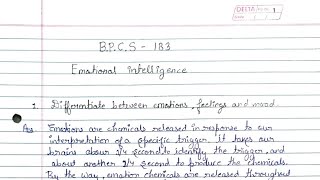 DELTA Pg No. 1
B.P.C.S - 183
Emotional intelligence
1. Differentiate between emotions, feelings and mood.
Ans. Emotions are chemicals released in response to our
interpretation of a specific trigger. It takes our
brains about 1/4 second to identify the trigger, and
about another 1/4 second to produce the chemicals.
By the way, emotion chemicals are released throughout